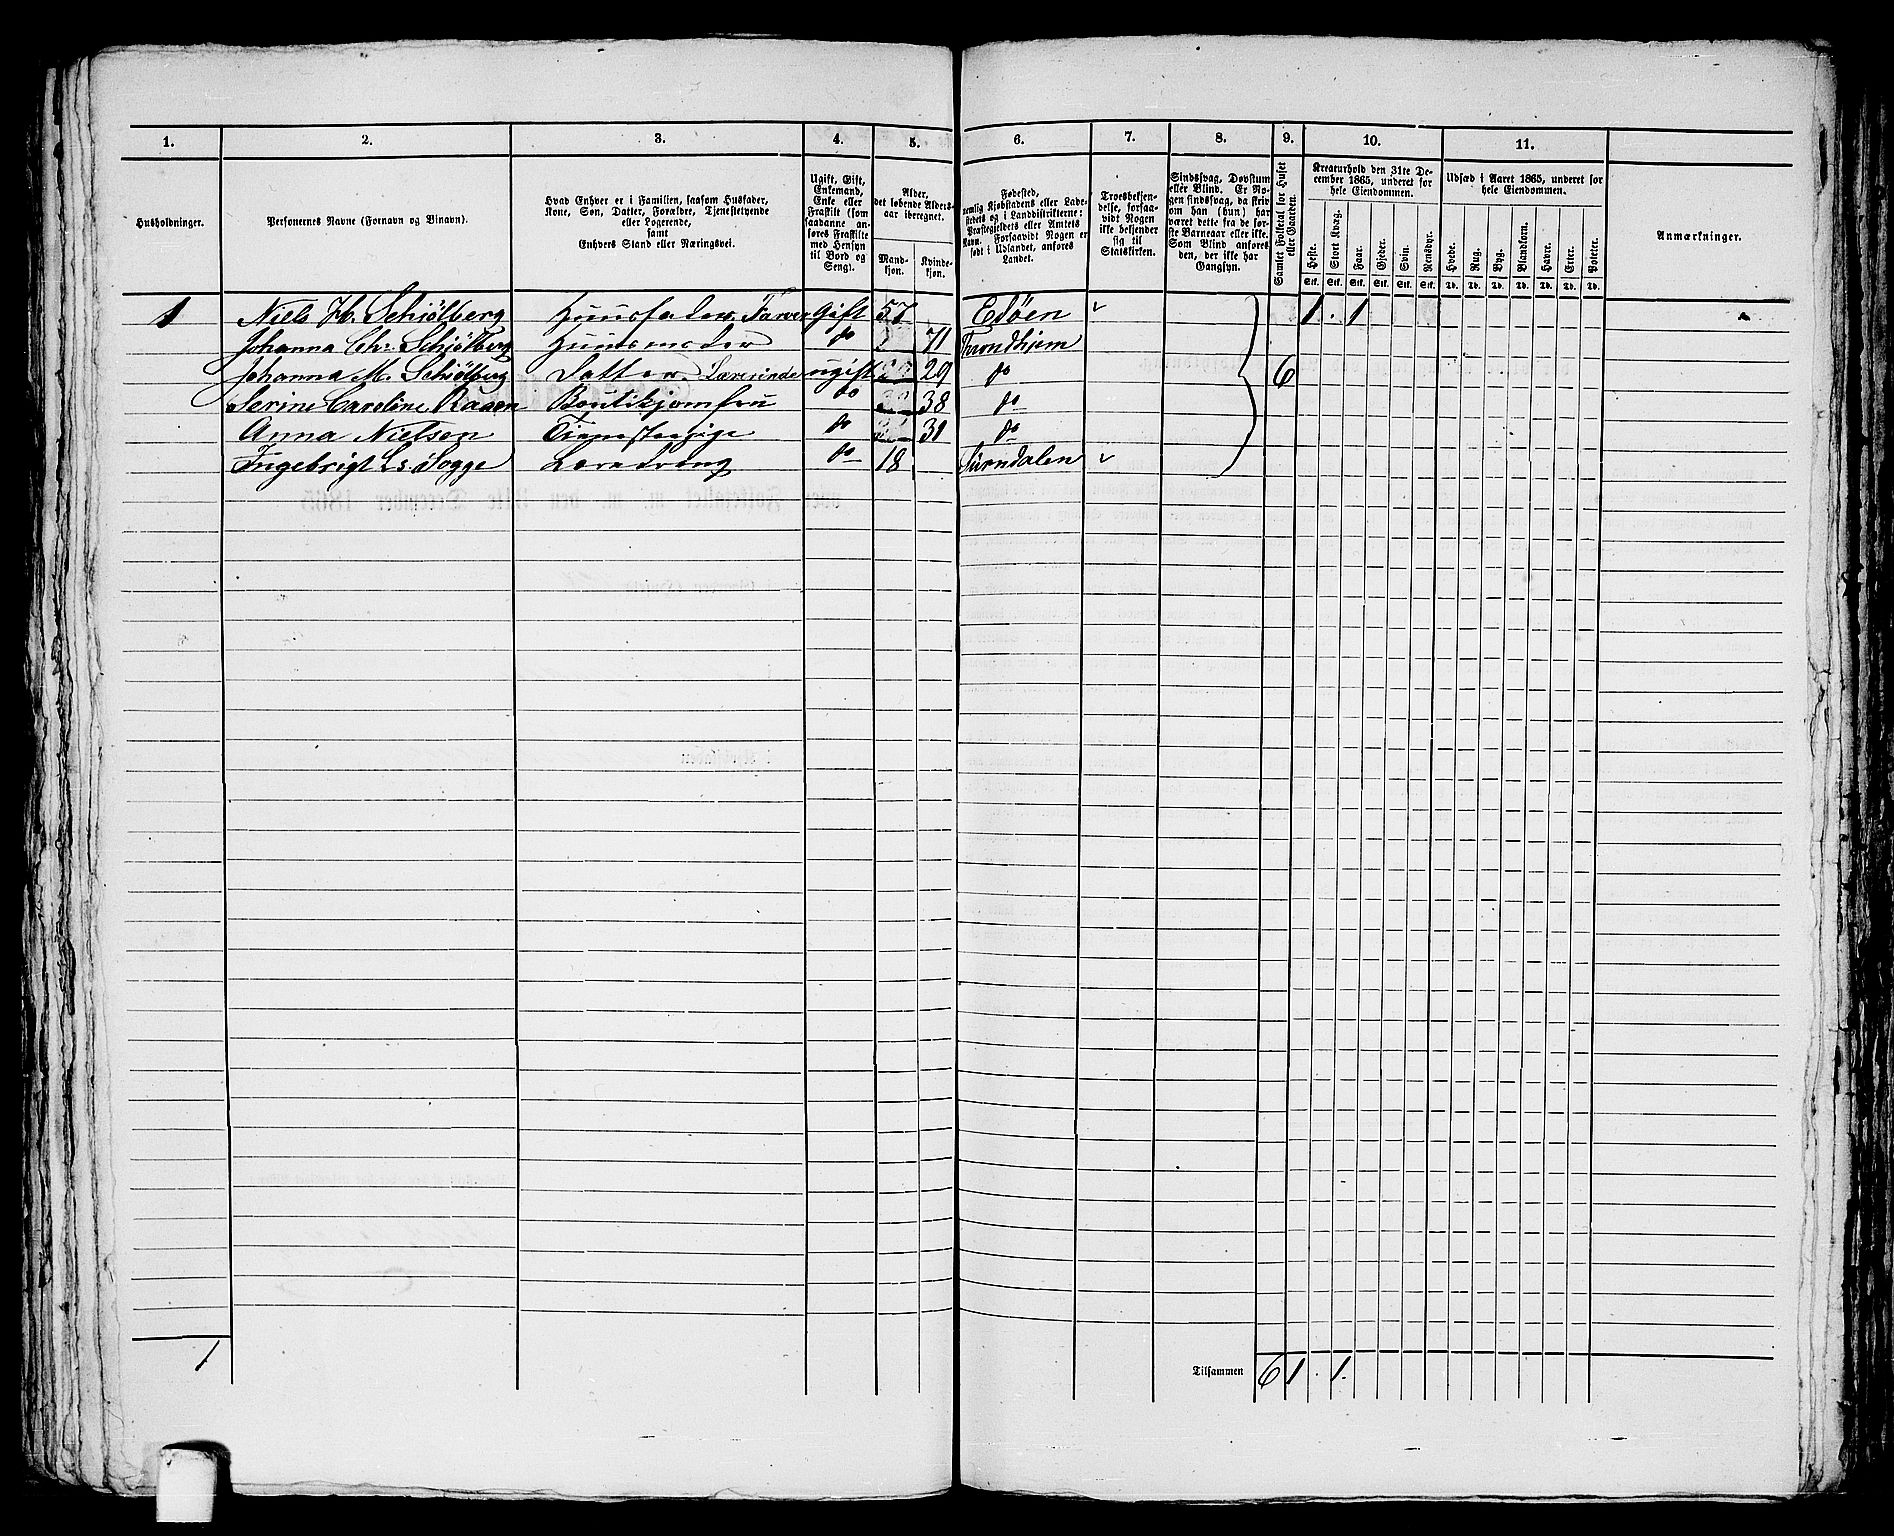 1. 2. 3. 4. 5. 6. 7. 8. 9. 10. 11.
Husholdninger.
Personernes Navne (Fornavn og Binavn).
Hvad Enhver er i Familien, saasom Husfader,
Kone, Søn, Datter, Forældre, Tjenestetyende
eller Logerende,
samt
Enhvers Stand eller Næringsvei.
Ugift, Gift,
Enkemand,
Enke eller
Fraskilt (som
saadanne an-
føres Fraskilte
med Hensyn
til Bord og
Seng).
Alder,
det løbende Alders-
aar iberegnet.
Mand-
kjøn.
Kvinde-
kjøn.
Fødested,
nemlig Kjøbstadens eller Lade-
stedets og i Landdistrikterne:
Præstegjeldets eller Amtets
Navn. Forsaavidt Nogen er
født i Udlandet, anføres
Landet.
Troesbekjen-
delse, forsaa-
vidt Nogen
ikke bekjender
sig til
Statskirken.
Sindssvag, Døvstum
eller Blind. Er No-
gen sindssvag, da skriv
om han (hun) har
været dette fra de før-
ste Barneaar eller ikke.
Som Blind anføres
den, der ikke har
Gangsyn.
Samlet Folketal for Huset
eller Gaarden.
Kreaturhold den 31te De-
cember 1865, underet for
hele Eiendommen.
Heste. Stort Kvæg. Faar. Gjeder. Svin. Rensdyr.
Stk. Stk. Stk. Stk. Stk. Stk.
Udsæd i Aaret 1865, underet for
hele Eiendommen.
Hvede. Rug. Byg. Blandkorn. Havre. Erter. Poteter.
Td. Td. Td. Td. Td. Td. Td.
Anmærkninger.
1 Niels H. Schjölberg Huusfader, Farver Gift 57 Edöen 1 . 1
Johanna Chr. Schjölberg Huusmoder do 71 Trondhjem
Johanna M. Schjölberg Datter Lærerinde ugift 29 do 6
Serine Caroline Raaen Boutikjomfru do 38 do
Anna Nielsen Tjenestepige do 31 do
Ingebrigt Ls. Sogge Læredreng do 18 Surndalen
1
Tilsammen 6 1 . 1.